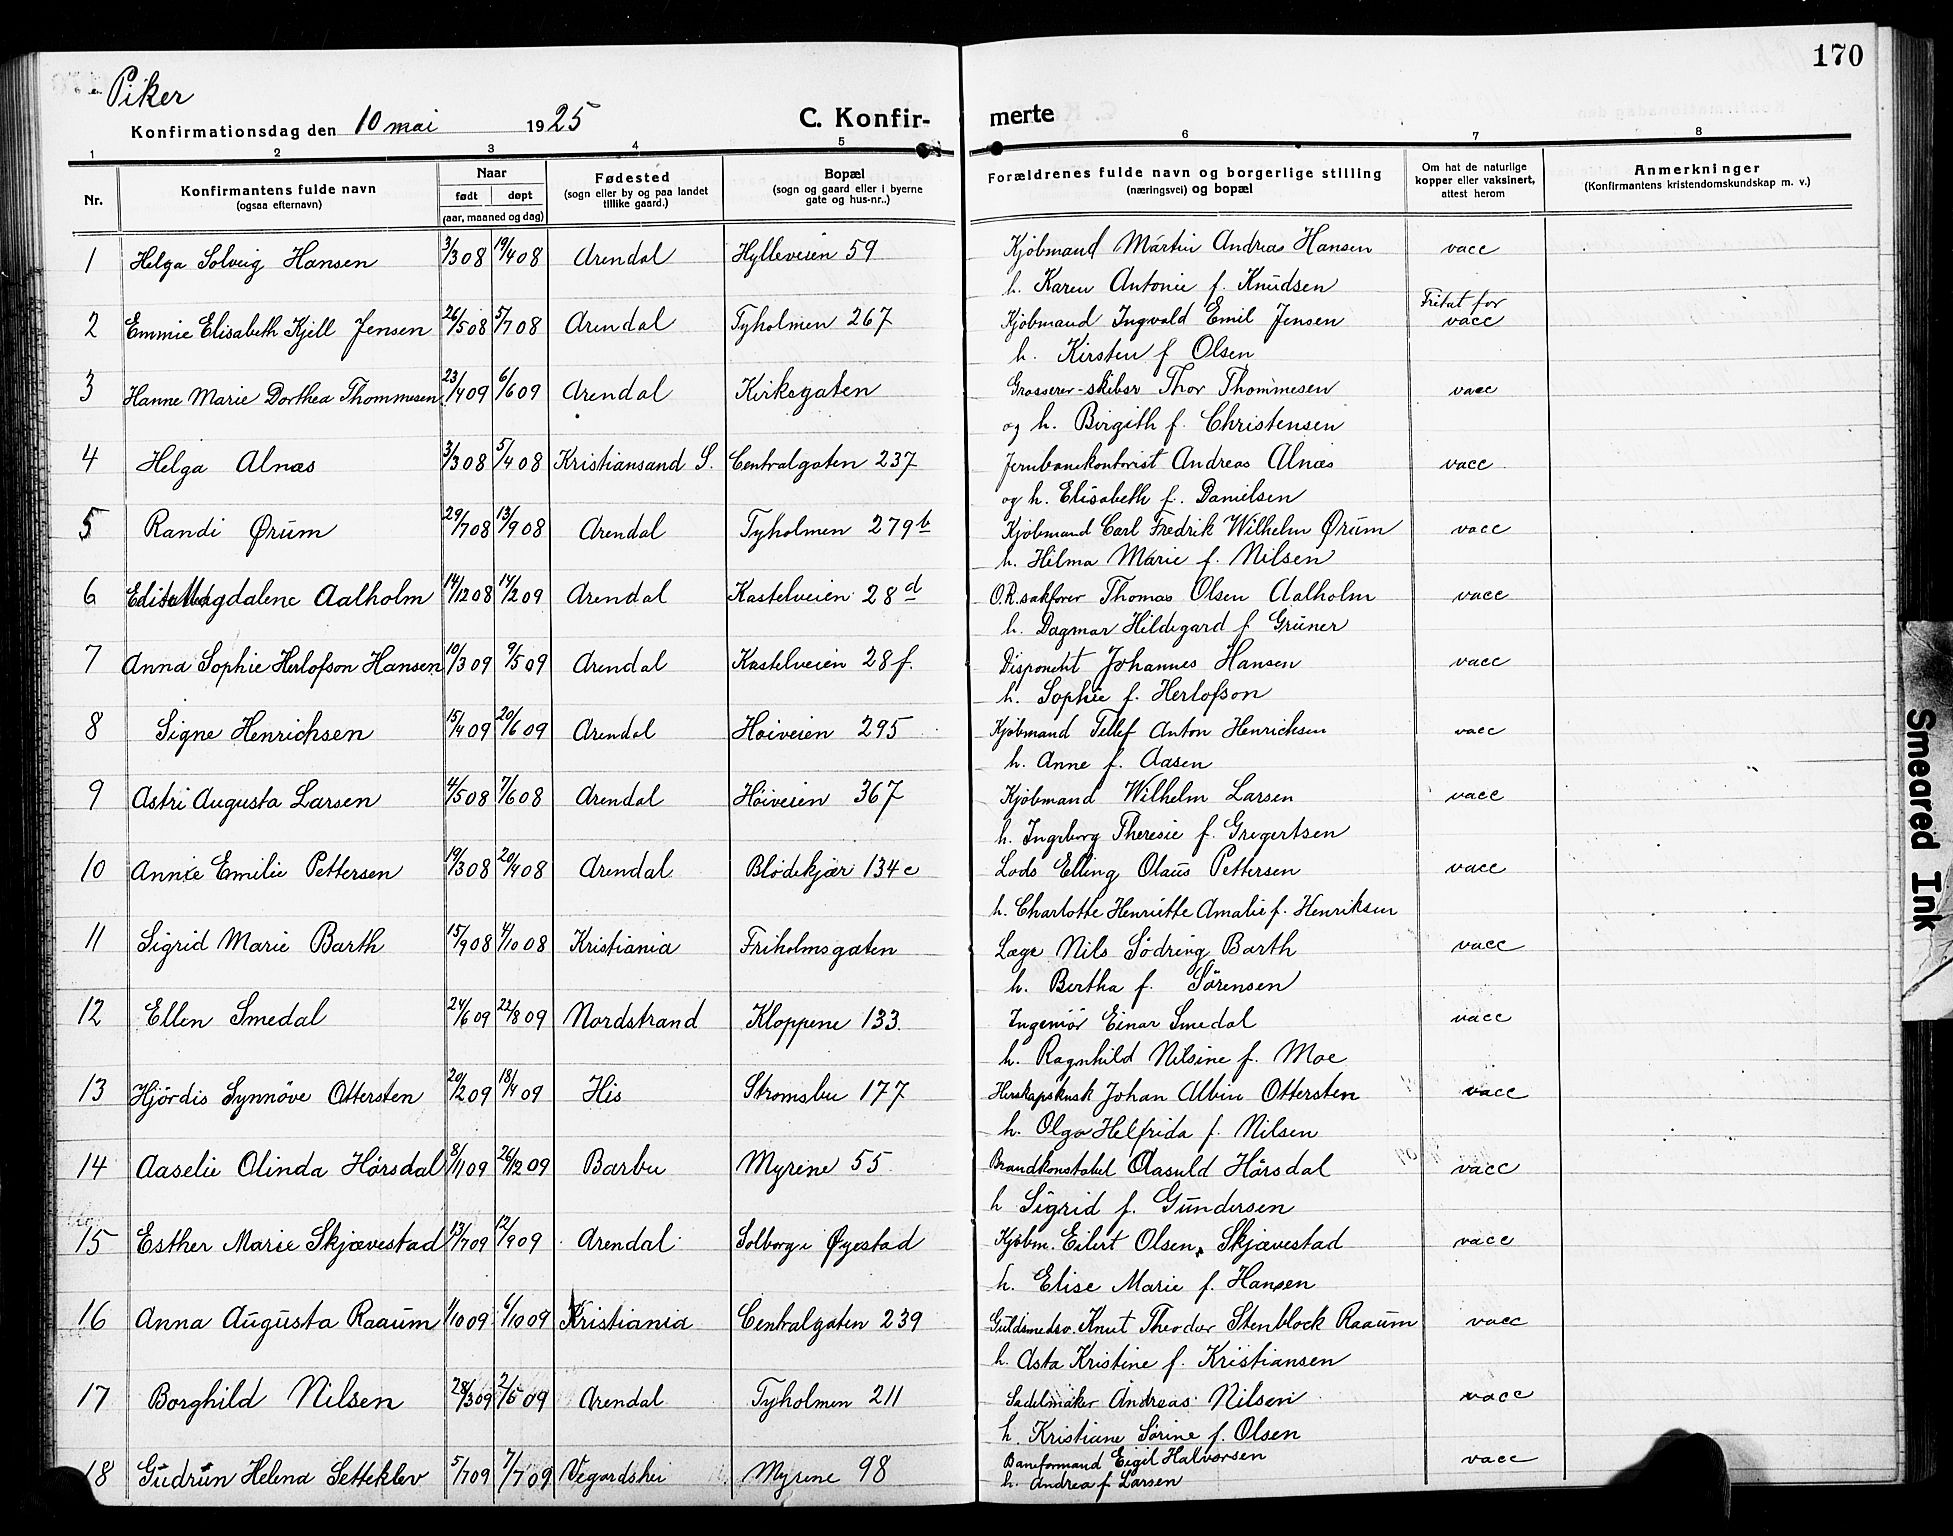 170
Piker
Konfirmationsdag den 10 mai 1925
C. Konfir- merte
1 2 3 4 5 6 7 8
Nr.
Konfirmantens fulde navn
(ogsaa efternavn)
Naar
født døpt
(aar, maaned og dag)
Fødested
(sogn eller by og paa landet
tillike gaard.)
Bopæl
(sogn og gaard eller i byerne
gate og hus-nr..)
Forældrenes fulde navn og borgerlige stilling
(næringsvei) og bopæl
Om hat de naturlige
kopper eller vaksinert,
attest herom
Anmerkninger
(Konfirmantens kristendomskundskap m. v.)
1 Helga Solveig Hansen 3/3 08 19/4 08 Arendal Hylleveien 59 Kjøbmand Martin Andreas Hansen vacc
h. Karen Antonie f. Knudsen
2 Emmie Elisabeth Kjell Jensen 26/5 08 5/7 08 Arendal Tyholmen 267 Kjøbmand Ingvald Emil Jensen Fritat for vacc
h. Kirsten f Olsen
3 Hanne Marie Dorthea Thommesen 23/4 09 6/6 09 Arendal Kirkegaten Grosserer-skibsr Thor Thommesen vacc
og h. Birgith f. Christensen
4 Helga Alnæs 3/3 08 5/4 08 Kristiansand S. Centralgaten 237 Jernbanekontorist Andreas Alnæs vacc
og h. Elisabeth f. Danielsen
5 Randi Ørum 29/7 08 13/9 08 Arendal Tyholmen 279 b Kjøbmand Carl Fredrik Wilhelm Ørum vacc
h. Hilma Marie f. Nilsen
6 Magdalene Aalholm 14/12 08 14/2 09 Arendal Kastelveien 28 d O.R.sakfører Thomas Olsen Aalholm vacc
h. Dagmar Hildegard f Grüner
7 Anna Sophie Herlofson Hansen 10/3 09 9/5 09 Arendal Kastelveien 28 f. Disponent Johannes Hansen vacc
h. Sophie f. Herlofson
8 Signe Henrichsen 15/4 09 20/6 09 Arendal Høiveien 295 Kjøbmand Tellef Anton Henrichsen vacc
h. Anne f. Aasen
9 Astri Augusta Larsen 4/5 08 7/6 08 Arendal Høiveien 367 Kjøbmand Wilhelm Larsen vacc
h. Ingeborg Theresie f. Gregertsen
10 Annie Emilie Pettersen 19/3 08 20/4 08 Arendal Blødekjær 134 c Lods Elling Olaus Pettersen vacc
h. Charlotte Henriette Amalie f. Henriksen
11 Sigrid Marie Barth 15/9 08 4/10 08 Kristiania Friholmsgaten Læge Nils Södring Barth vacc
h. Bertha f. Sørensen
12 Ellen Smedal 24/6 09 22/8 09 Nordstrand Kloppene 133. Ingeniør Einar Smedal vacc
h. Ragnhild Nilsine f. Moe
13 Hjørdis Synnøve Ottersten 20/2 09 18/4 09 His Strømsbu 177 Herskapskusk Johan Albin Ottersten vacc
h. Olga Helfrida f. Nilsen
14 Aaselie Olinda Hørsdal 8/11 09 26/12 09 Barbu Myrene 55 Brandkonstabel Aasuld Hørsdal vacc
h Sigrid f. Gundersen
15 Esther Marie Skjævestad 13/7 09 12/9 09 Arendal Solborg i Øyestad Kjøbm. Eilert Olsen Skjævestad vacc
h. Elise Marie f. Hansen
16 Anna Augusta Raaum 1/10 09 6/10 09 Kristiania Centralgaten 239 Guldsmedsv. Knut Theodor Stenblock Raaum vacc
h. Asta Kristine f. Kristiansen
17 Borghild Nilsen 28/3 09 2/5 09 Arendal Tyholmen 211 Sadelmaker Andreas Nilsen vacc
h. Kristiane Sørine f. Olsen
18 Gudrun Helena Setteklev 5/7 09 7/7 09 Vegardshei Myrene 98 Baneformand Eigil Halvorsen vacc
h. Andrea f Larsen
Smeared Ink